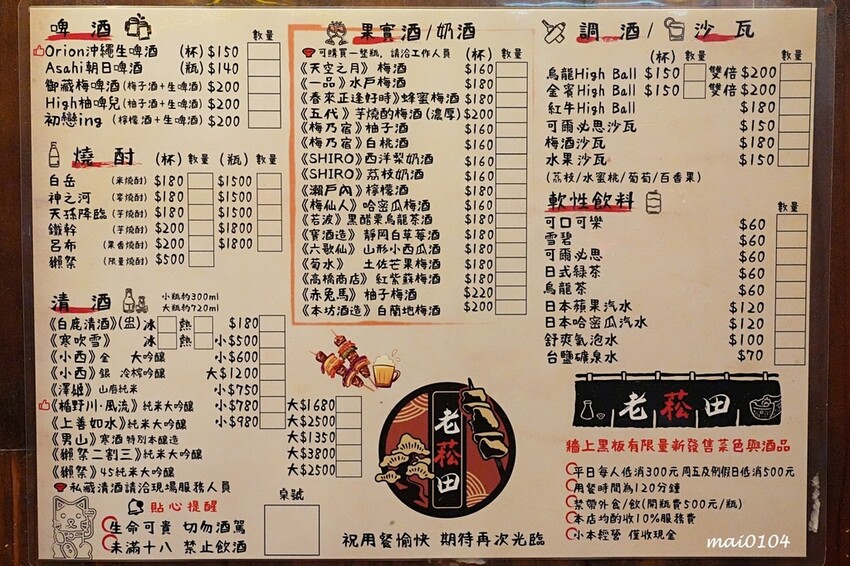 啤酒 數量
Orion沖繩生啤酒 (杯) $150
Asahi朝日啤酒 (瓶) $140
御藏梅啤酒 (梅子酒+生啤酒) $200
High柚啤兒 (柚子酒+生啤酒) $200
初戀ing (檸檬酒+生啤酒) $200
燒酎 (杯) 數量 (瓶) 數量
白岳 (米燒酎) $180 $1500
神之河 (麥燒酎) $180 $1500
天孫降臨 (芋燒酎) $180 $1500
鐵幹 (芋燒酎) $200 $1800
呂布 (果香燒酎) $200 $1800
獺祭 (限量燒酎) $500
清酒 小瓶約300ml
大瓶約720ml
《白鹿清酒》(盅) 冰 熱 $180
《寒吹雪》 冰 熱 小$500
《小西》金 大吟釀 小$600
《小西》銀 冷榨吟釀 大$1200
《澤姬》山廢純米 小$750
《楯野川·風流》純米大吟釀 小$780 大$1680
《上善如水》純米大吟釀 小$980 大$2500
《男山》寒酒 特別本釀造 大$1350
《獺祭二割三》純米大吟釀 大$3800
《獺祭》45純米大吟釀 大$2500
私藏清酒請洽現場服務人員
貼心提醒
生命可貴 切勿酒駕
未滿十八 禁止飲酒
桌號
果實酒/奶酒
可購買一整瓶,請洽工作人員 (杯) 數量
《天空之月》梅酒 $160
《一品》水戶梅酒 $180
《春來正逢好時》蜂蜜梅酒 $180
《五代》芋燒酎梅酒(濃厚) $200
《梅乃宿》柚子酒 $160
《梅乃宿》白桃酒 $160
《SHIRO》西洋梨奶酒 $160
《SHIRO》荔枝奶酒 $160
《瀨戶內》檸檬酒 $180
《梅仙人》哈密瓜梅酒 $160
《若波》黑醋栗烏龍茶酒 $180
《寶酒造》靜岡白草莓酒 $180
《六歌仙》山形小西瓜酒 $180
《菊水》 土佐芒果梅酒 $180
《高橋商店》紅紫蘇梅酒 $180
《赤兔馬》柚子梅酒 $220
《本坊酒造》白蘭地梅酒 $200
老菘田
祝用餐愉快 期待再次光臨
調酒/沙瓦
(杯) 數量 數量
烏龍High Ball $150 雙倍 $200
金賓High Ball $150 雙倍 $200
紅牛High Ball $180
可爾必思沙瓦 $150
梅酒沙瓦 $180
水果沙瓦 $150
(荔枝/水蜜桃/葡萄/百香果)
軟性飲料 數量
可口可樂 $60
雪碧 $60
可爾必思 $60
日式綠茶 $60
烏龍茶 $60
日本蘋果汽水 $120
日本哈密瓜汽水 $120
舒爽氣泡水 $100
台鹽礦泉水 $70
老菘田
牆上黑板有限量新發售菜色與酒品
平日每人低消300元 周五及例假日低消500元
用餐時間為120分鐘
禁帶外食/飲(開瓶費500元/瓶)
本店均酌收10%服務費
小本經營 僅收現金
mai0104